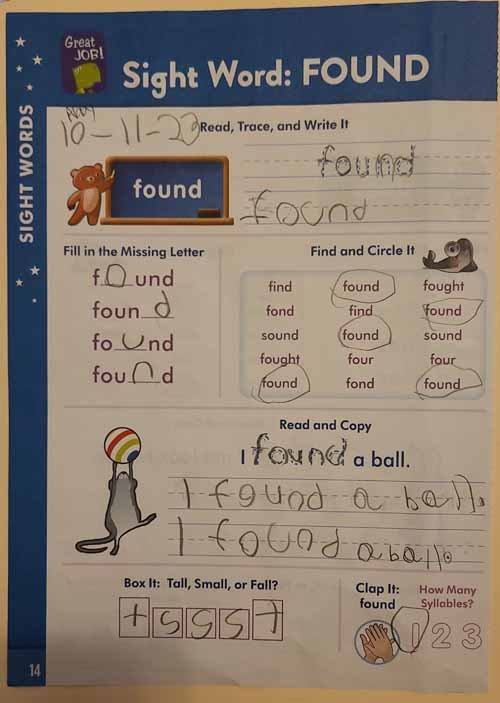 Great
JOB!
Sight Word: FOUND
SIGHT WORDS
10-11-23
Read, Trace, and Write It
found
found
found
Fill in the Missing Letter
found
found
found
found
Find and Circle It
find found fought
fond find found
sound found sound
fought four four
found fond found
Read and Copy
I found a ball.
I found a ball.
I found a ball.
Box It: Tall, Small, or Fall?
t s s s t
Clap It:
found
How Many
Syllables?
1 2 3
14